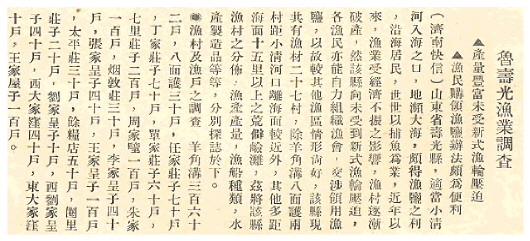 魯壽光漁業調查
▲產量豐富未受新式漁輪壓迫
▲漁民購領漁鹽辦法頗為便利
（濟南快信）山東省壽光縣，適當小清
河入海之口，地瀕大海，頗得漁鹽之利
，沿海居民，世世以捕魚為業，近年以
來，漁業受經濟不振之影響，漁村逐漸
破產，然該縣尙未受到新式漁輪壓迫，
各漁民亦能自力組織漁會，交涉領用漁
鹽，以故較其他漁區情形尙好，該縣現
共有漁村二十七村，除羊角溝八面護兩
村距小清河口離海面較近外，其他多距
海面十五里以上之荒僻鹼灘，茲將該縣
漁村之分佈，漁產產量，漁船種類，水
產製造品等等，分別探誌於下。
◉漁村及漁戶之調查　羊角溝三百六十
二戶，八面護三十戶，任家莊子七十戶
，丁家莊子七十戶，單家莊子六十戶，
七里莊子二百戶，周家疃一百戶，朱家
一百戶，烟敦莊三十戶，李家呈子四十
戶，張家呈子四十戶，王家呈子一百戶
，太平莊三十戶，餘糧店五十戶，圈里
莊子二十戶，劉家呈子十戶，西劉家呈
子四十戶，西大家窪四十戶，東大家窪
十戶，王家屋子一百戶。